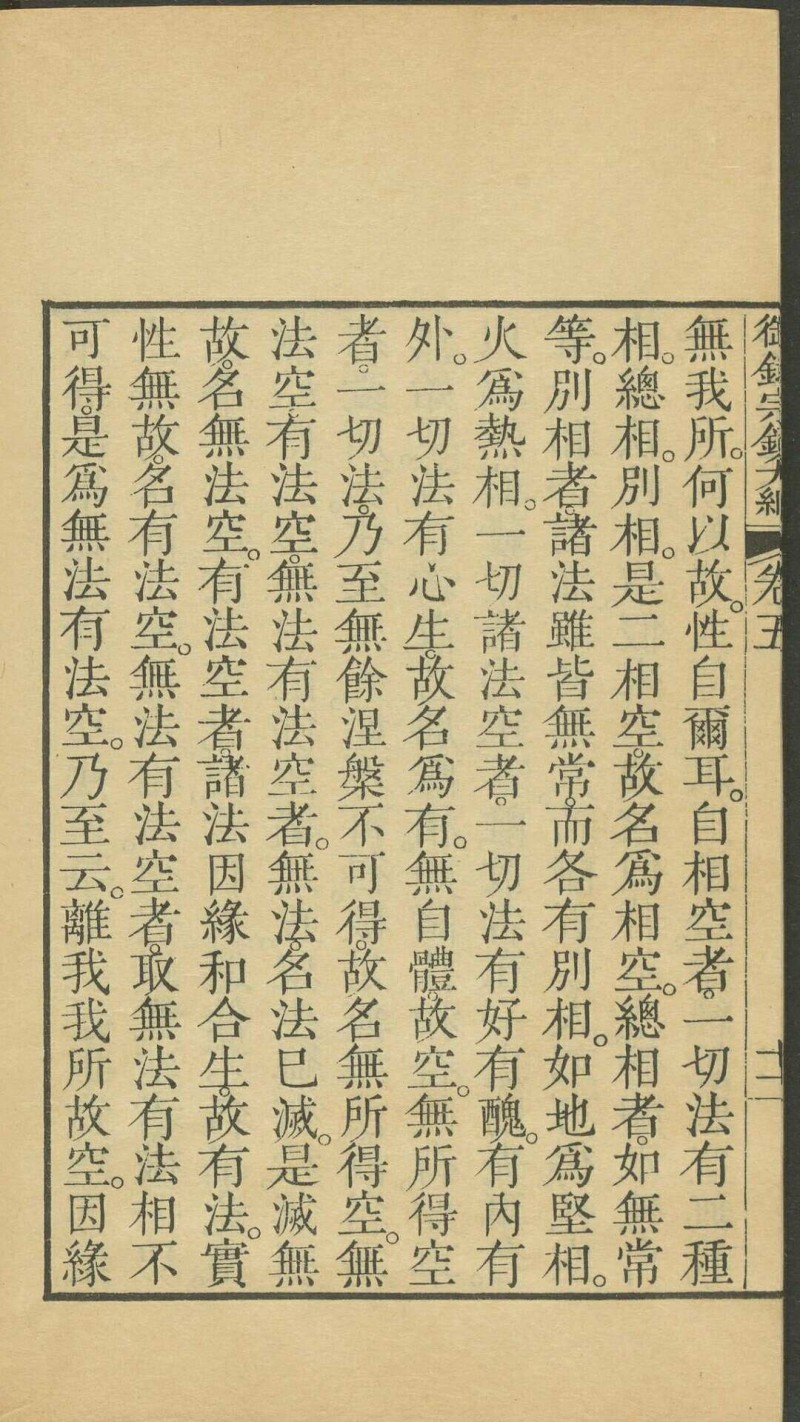 御錄宗鏡大綱 卷五 十二
無我所。何以故。性自爾耳。自相空者。一切法有二種
相。總相。別相。是二相空。故名爲相空。總相者。如無常
等。別相者。諸法雖皆無常。而各有別相。如地爲堅相。
火爲熱相。一切諸法空者。一切法有好有醜。有內有
外。一切法有心生。故名爲有。無自體。故空。無所得空
者。一切法。乃至無餘涅槃不可得。故名無所得空。無
法空。有法空。無法有法空者。無法。名法已滅。是滅無
故。名無法空。有法空者。諸法因緣和合生。故有法。實
性無故。名有法空。無法有法空者。取無法有法相不
可得。是爲無法有法空。乃至云。離我我所故空。因緣